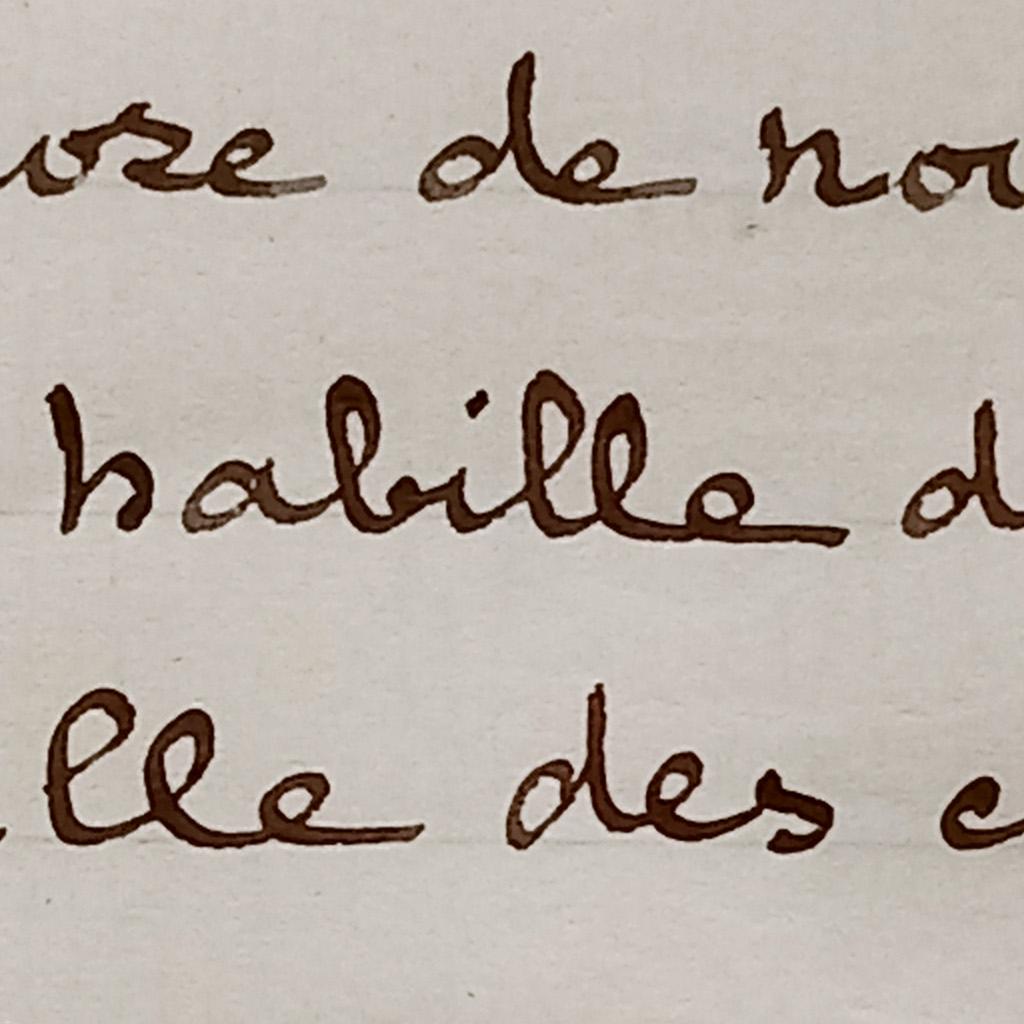 ore de nou
habille d
lle des c